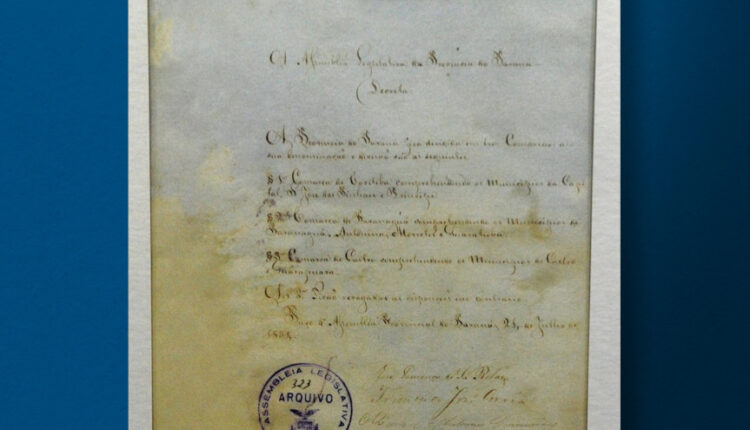 A Assembléa Legislativa da Provincia do Paraná
Decreta
A Provincia do Paraná fica dividida em tres Comarcas, a
sua denominação e divisão são as seguintes
§ 1º Comarca de Coritiba comprehendendo os Municipios da Capi
tal, S. José dos Pinhaes e Principe
§ 2º Comarca de Paranaguá comprehendendo os Municipios de
Paranaguá, Antonina, Morretes e Guaratuba
§ 3º Comarca de Castro comprehendendo os Municipios de Castro
e Guarapuava
Art. 2º Ficão revogadas as disposições em contrario
Paço d' Assembléa Provincial do Paraná, 21 de Julho de
1854
José Lourenço de Sá Ribas
Francisco José Correia
ASSEMBLEIA LEGISLATIVA
323
ARQUIVO